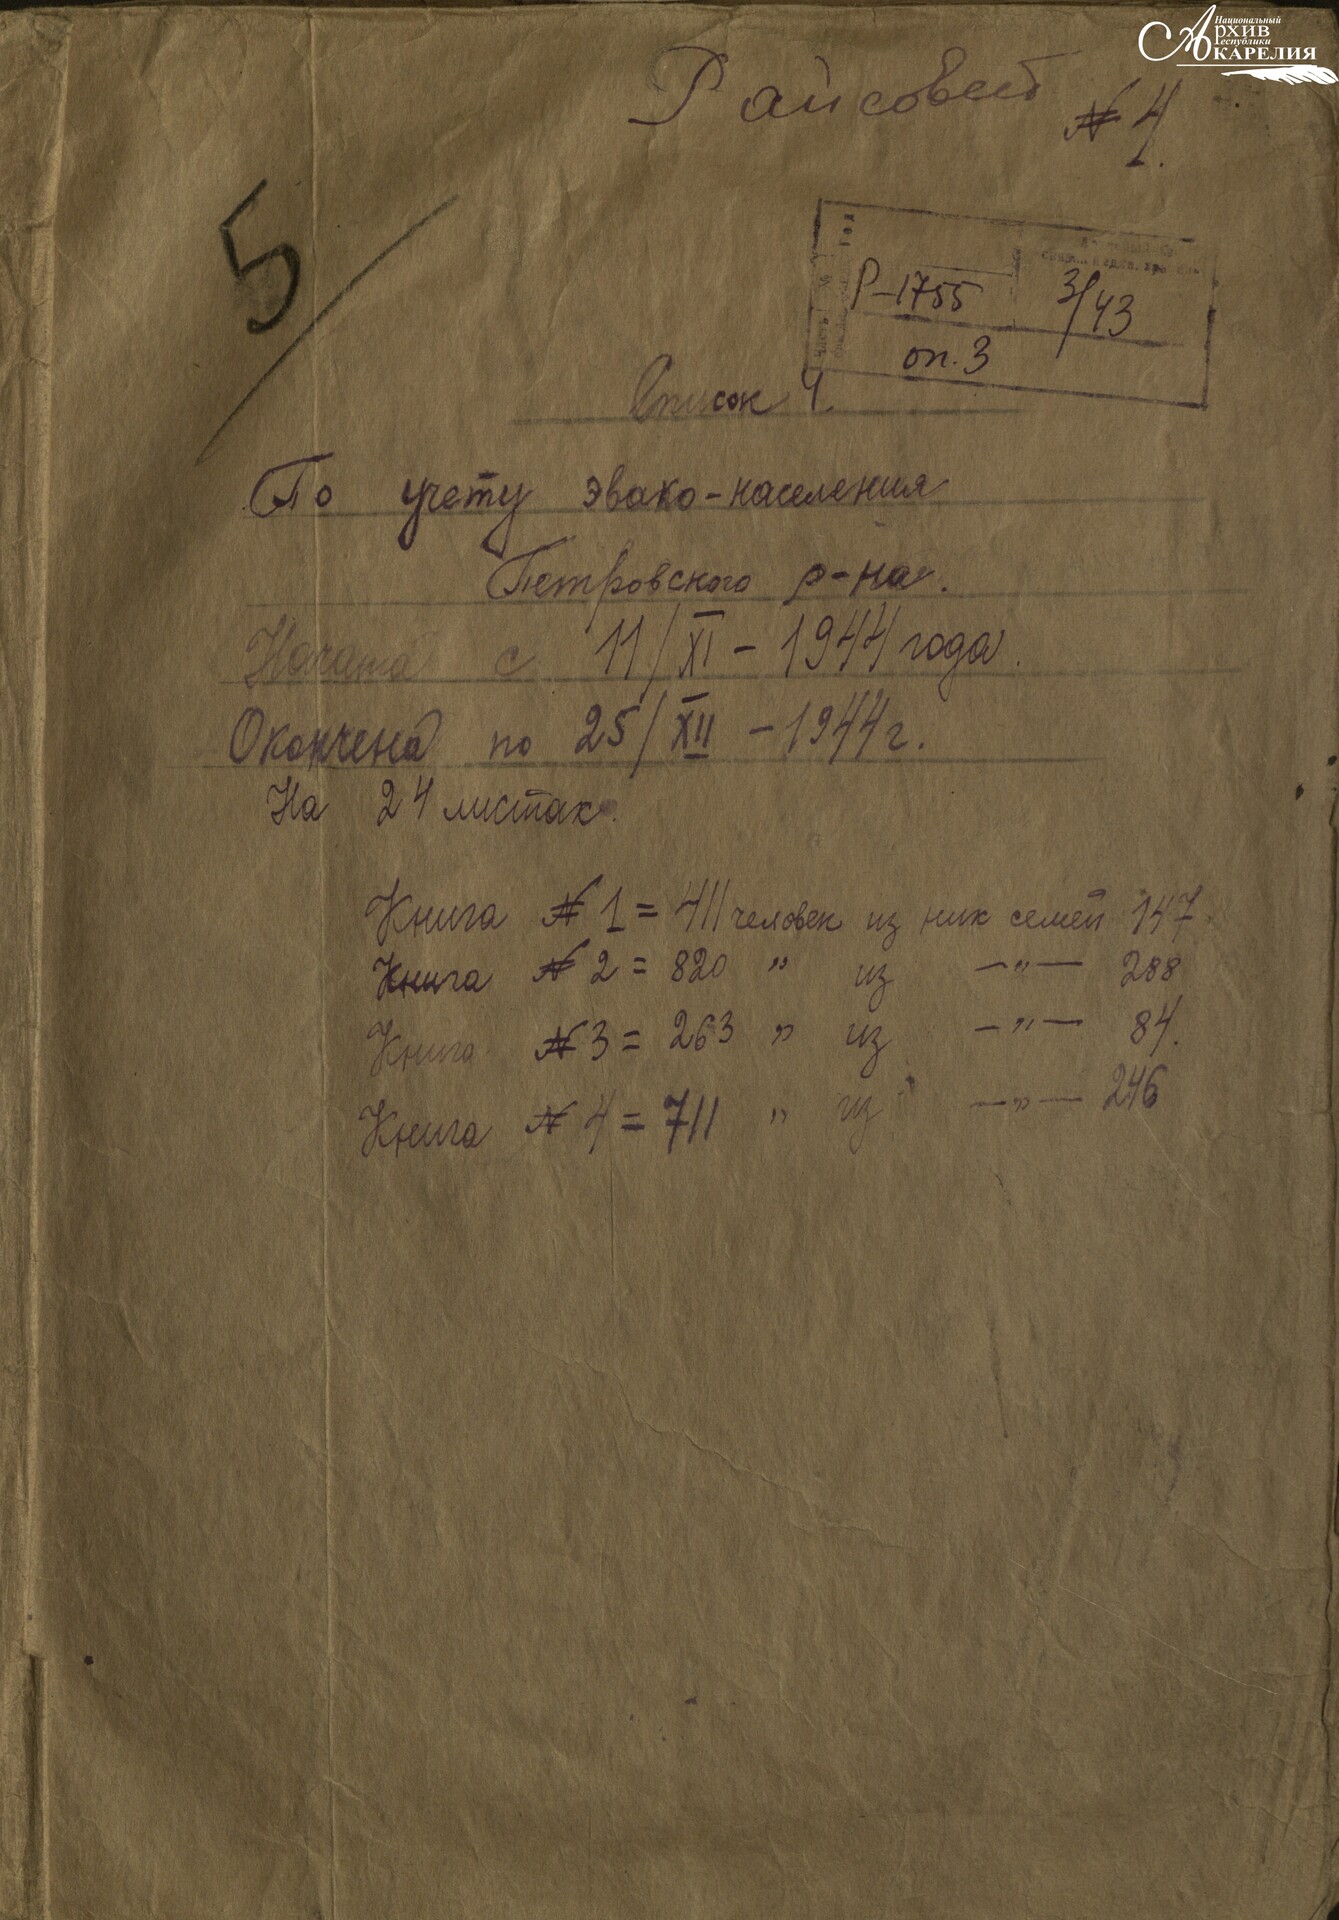 Национальный
Архив
Республики
Карелия
Райсовет
№ 4.
5/
Р-1755
3/43
оп. 3
Список 4
По учету эвако-населения
Петровского р-на.
Начата с 11/XI - 1944 года.
Окончена по 25/XII - 1944 г.
На 24 листах.
Книга № 1 = 411 человек из них семей 147.
Книга № 2 = 820 " из —"— 288
Книга № 3 = 263 " из —"— 84.
Книга № 4 = 711 " из —"— 246